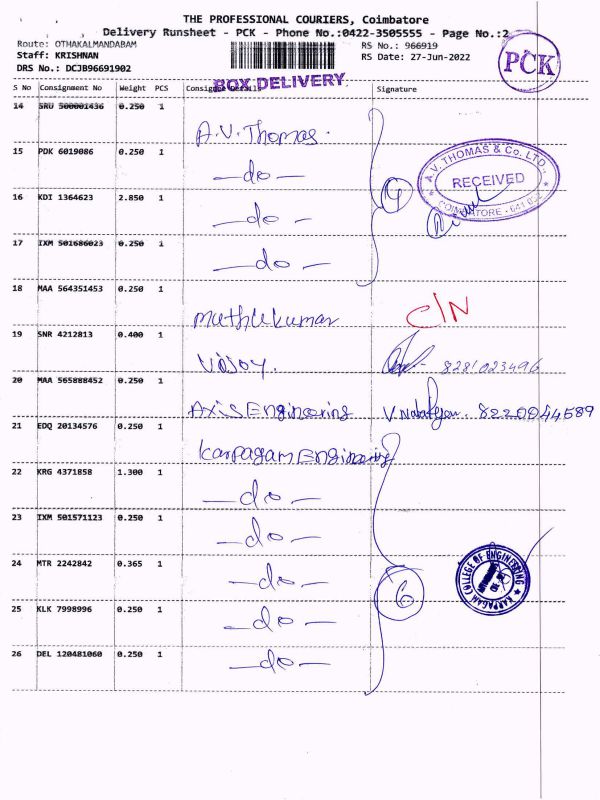 THE PROFESSIONAL COURIERS, Coimbatore
Delivery Runsheet - PCK - Phone No.:0422-3505555 - Page No.:2
Route: OTHAKALMANDABAM
RS No.: 966919
Staff: KRISHNAN
RS Date: 27-Jun-2022
DRS No.: DCJB96691902
PCK
BOX DELIVERY
S No Consignment No Weight PCS Consignee Details Signature
14 SRU 500001436 0.250 1 A.V. Thomas.
15 PDK 6019086 0.250 1 —do—
16 KDI 1364623 2.850 1 —do—
17 IXM 501686023 0.250 1 —do—
4
A.V. THOMAS & Co. LTD.,
RECEIVED
COIMBATORE - 641 032
18 MAA 564351453 0.250 1 Muthukumar C/N
19 SNR 4212813 0.400 1 Vijoy. 8281023496
20 MAA 565888452 0.250 1 Axis Engineering 8220044589
21 EDQ 20134576 0.250 1 Karpagam Engineering
22 KRG 4371858 1.300 1 —do—
23 IXM 501571123 0.250 1 —do—
24 MTR 2242842 0.365 1 —do—
25 KLK 7998996 0.250 1 —do—
26 DEL 120481060 0.250 1 —do—
6
KARPAGAM COLLEGE OF ENGINEERING